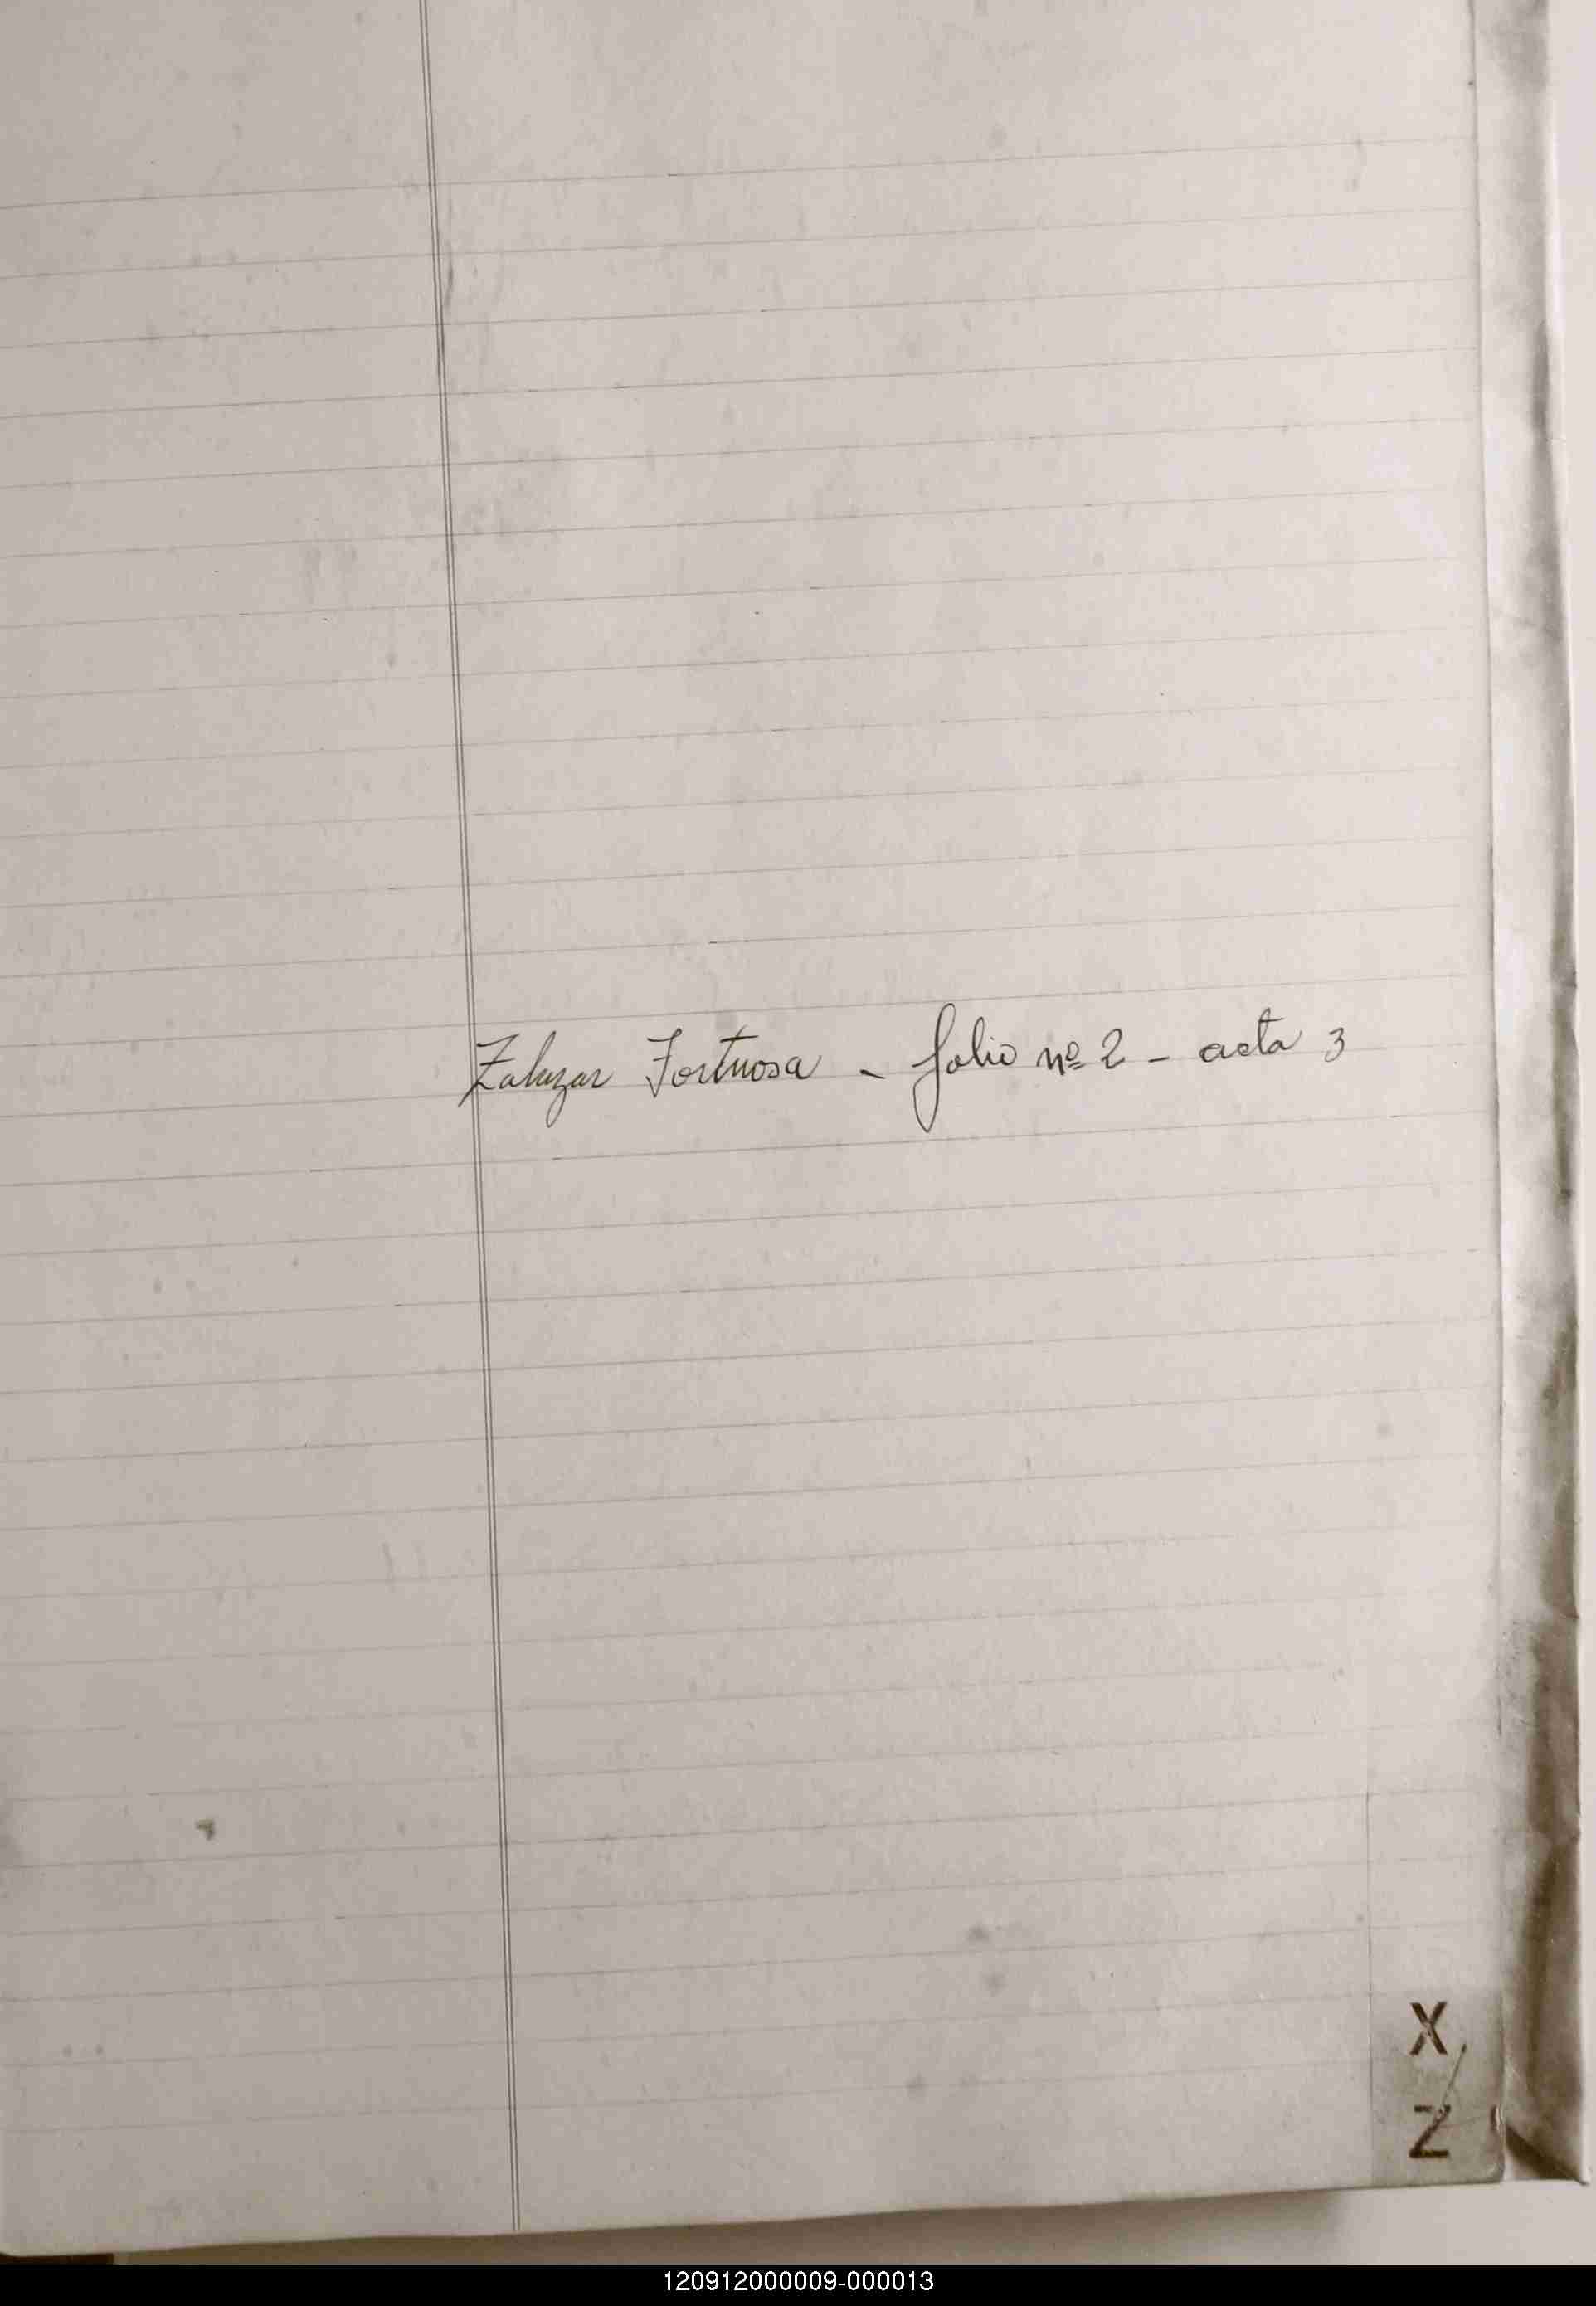 Zalazar Fortuosa - folio nº 2 - acta 3
X
Z
120912000009-000013